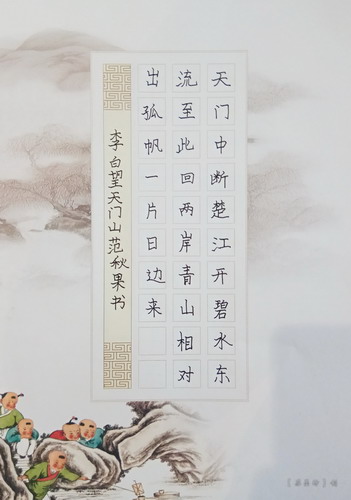 天门中断楚江开碧水东
流至此回两岸青山相对
出孤帆一片日边来
李白望天门山范秋果书